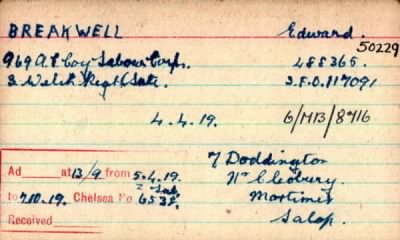 BREAKWELL Edward.
50229
969 A.E. Coy Labour Corps. 488365.
3 Welch Regt late. S.F.D. 117091
4.4.19. 6/M13/8716
7 Doddington
Ad at 13/9 from 5.4.19. Nr Cleobury.
to 7.10.19. Chelsea No 6538. Mortimer
Received Salop.